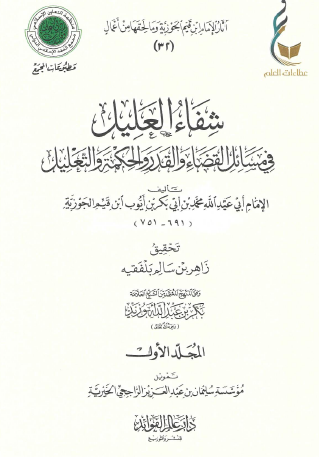 آثار الإمام ابن قيم الجوزية وما لحقها من أعمال
(٣٢)
مطبوعات المجمع
عطاءات العلم
شفاء العليل
في مسائل القضاء والقدر والحكمة والتعليل
تأليف
الإمام أبي عبد الله محمد بن أبي بكر بن أيوب ابن قيم الجوزية
(٦٩١ - ٧٥١)
تحقيق
زاهر بن سالم بلفقيه
وفق المنهج المعتمد من الشيخ العلامة
بكر بن عبد الله أبو زيد
(رحمه الله تعالى)
المجلد الأول
تمويل
مؤسسة سليمان بن عبد العزيز الراجحي الخيرية
دار عالم الفوائد
للنشر والتوزيع